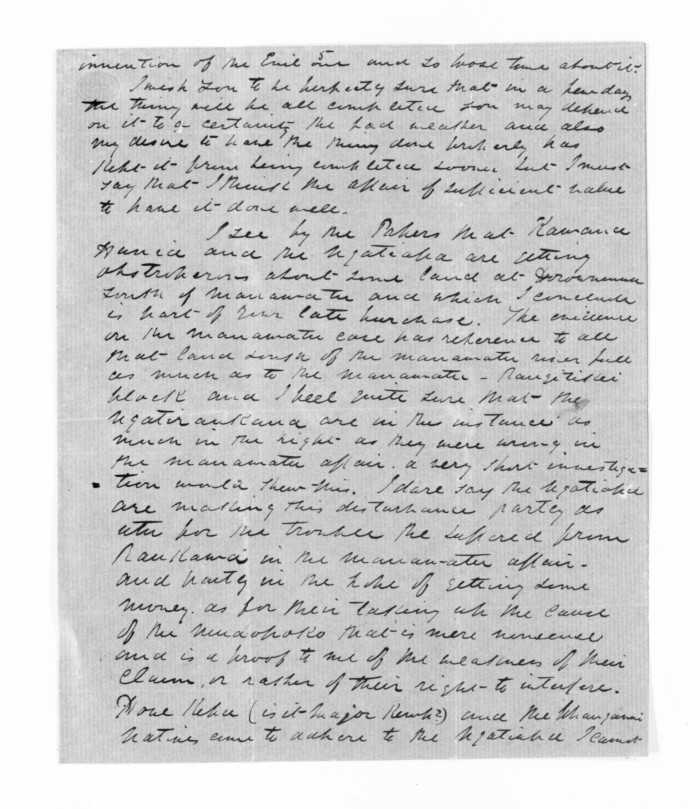 invention of the Evil one and so lose time about it.
I wish you to be perfectly sure that in a few days
the thing will be all completed you may depend
on it to a certainty the bad weather and also
my desire to have the thing done properly has
kept it from being completed sooner but I must
say that I think the affair of sufficient value
to have it done well.
I see by the Papers that Kawana
Hunia and the Ngatiapa are getting
obstroperous about some land at
south of Manawatu and which I conclude
is part of your late purchase. The evidence
on the Manawatu case has reference to all
that land south of the Manawatu river full
as much as to the Manawatu - Rangitikei
block and I feel quite sure that the
Ngatiraukaua are in this instance as
much in the right as they were wrong in
the Manawatu affair. a very short investiga=
=tion would shew this. I dare say the Ngatiapa
are making this disturbance partly as
utu for the trouble the suffered from
Raukawa in the Manawatu affair -
and partly in the hope of getting some
money. as for their taking up the cause
of the Muaopoko that is mere nonsense
and is a proof to me of the weakness of their
claim, or rather of their right to interfere.
How Kepa (is it Major Kemp?) and the Whanganui
natives came to adhere to the Ngatiapa I cannot